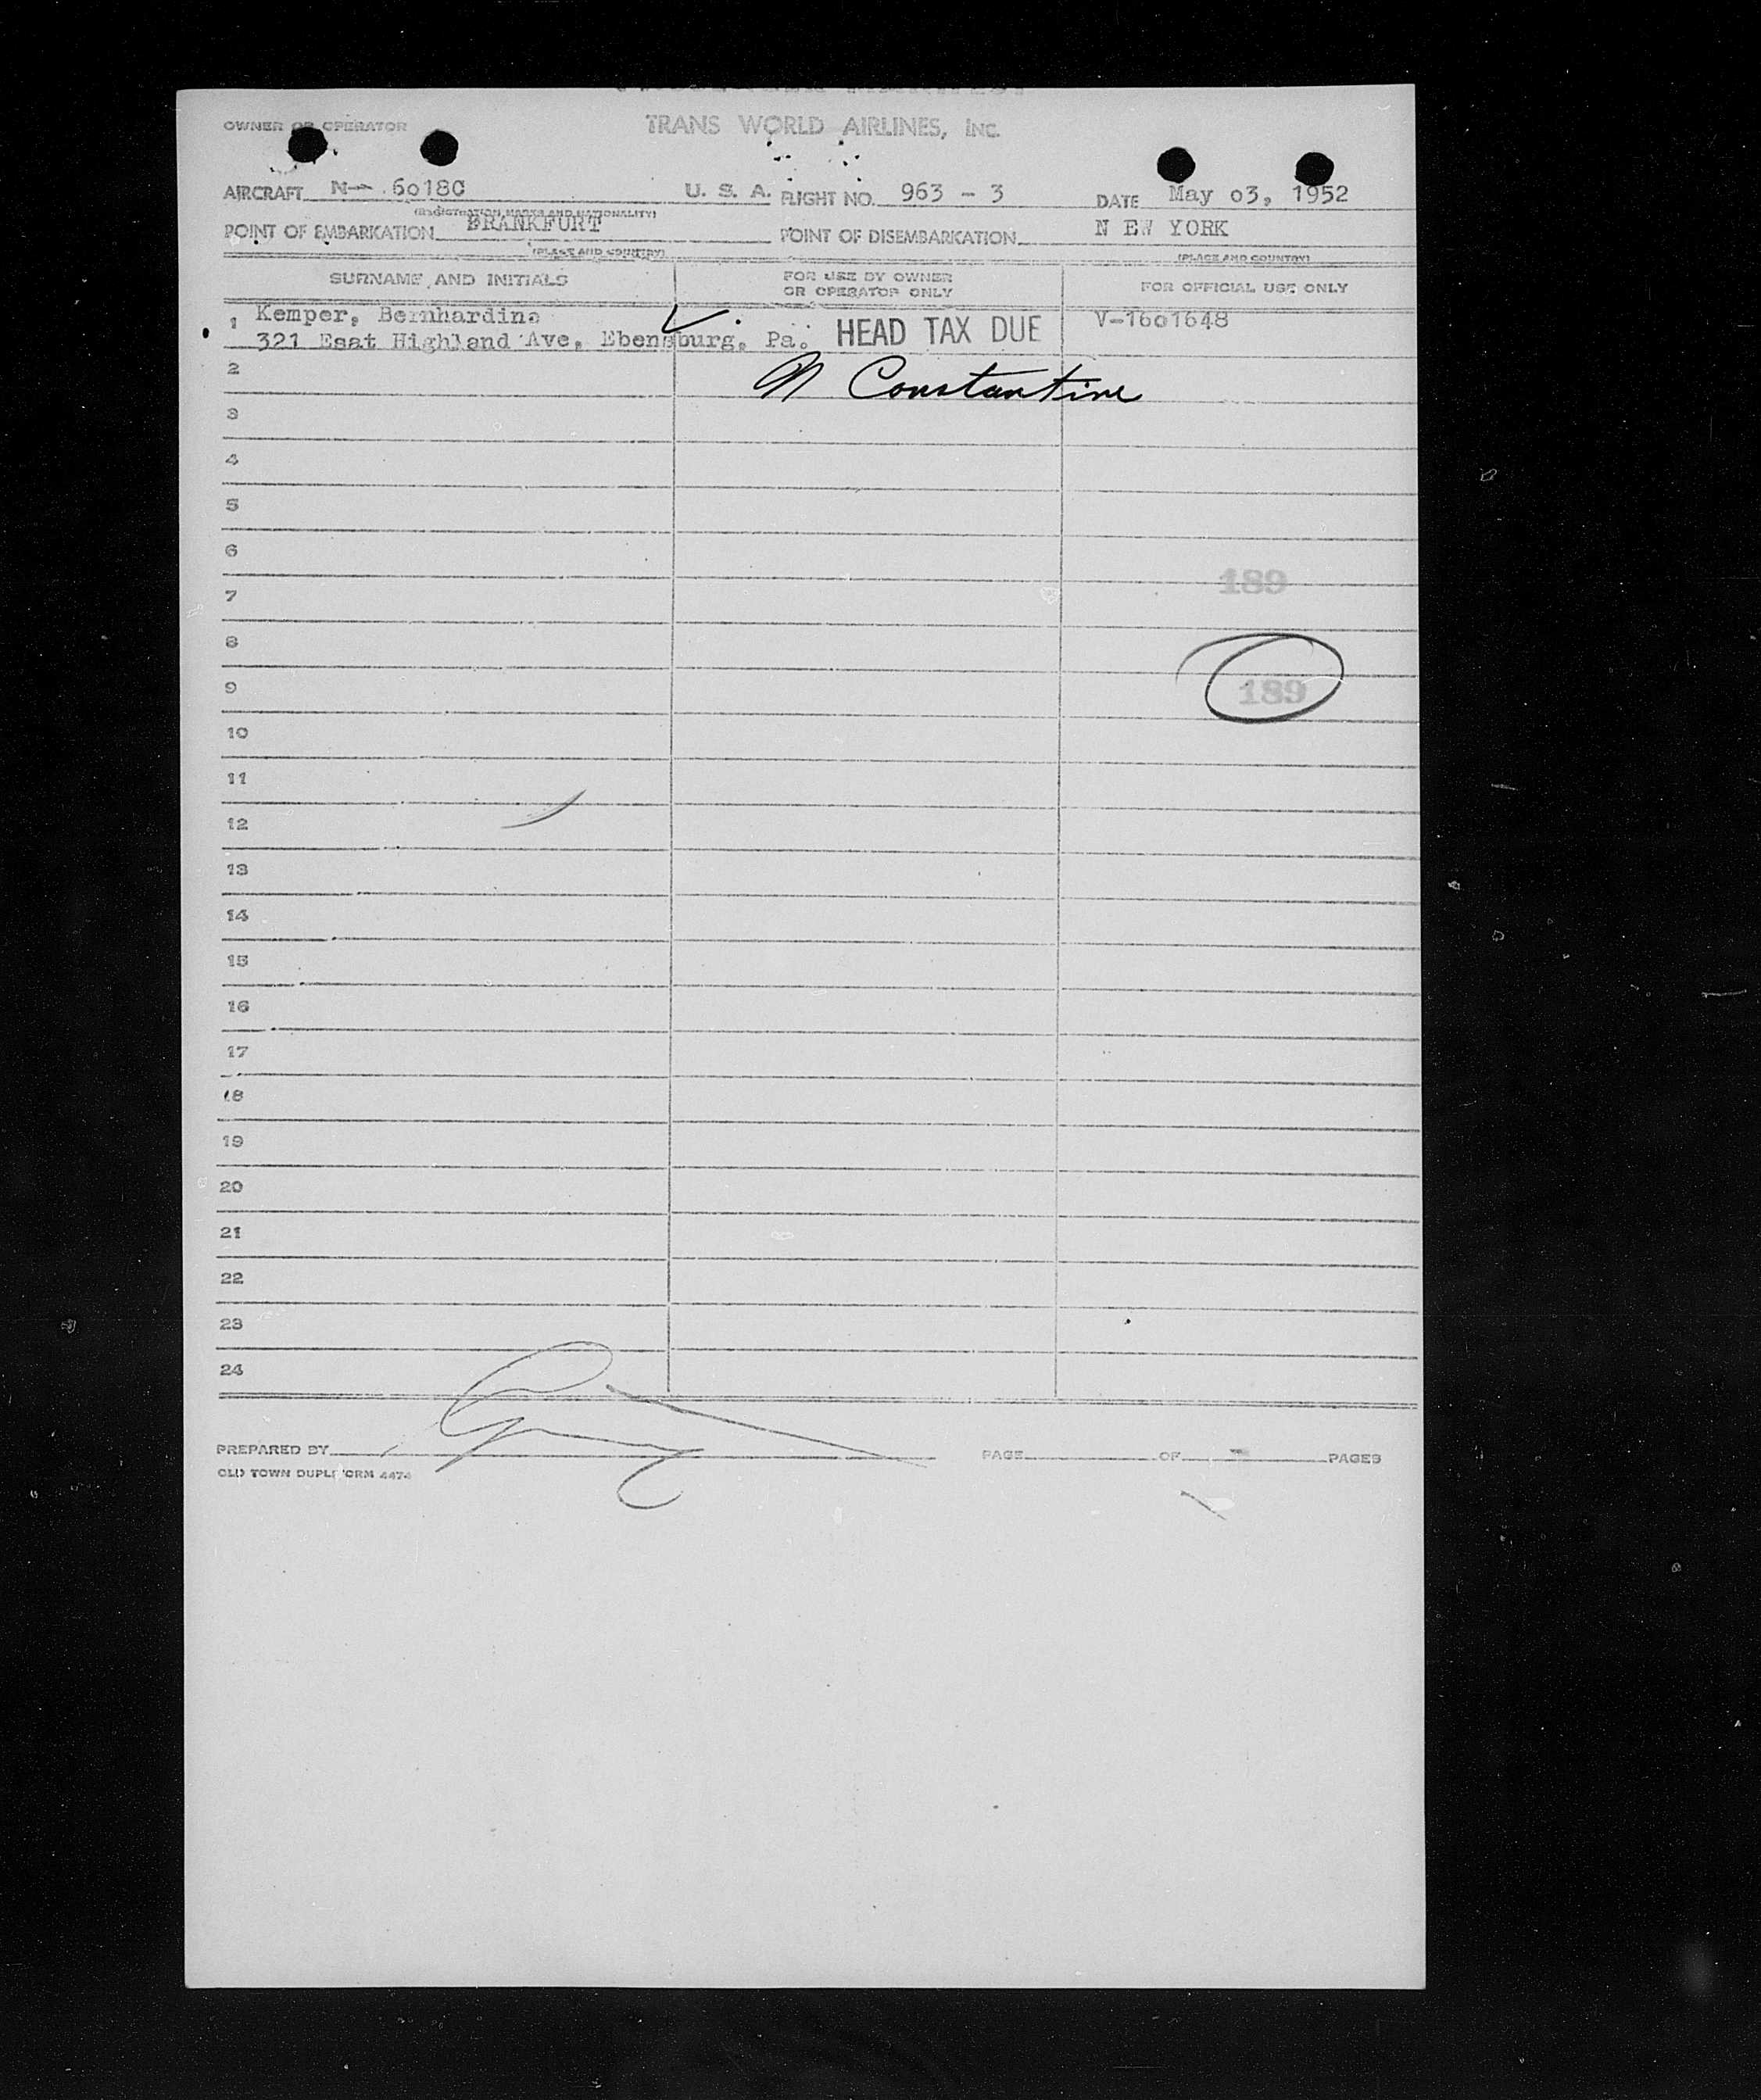 OWNER OR OPERATOR TRANS WORLD AIRLINES, INC.
AIRCRAFT N- 6018C U. S. A. FLIGHT NO. 963 - 3 DATE May 03, 1952
(REGISTRATION MARKS AND NATIONALITY)
POINT OF EMBARKATION FRANKFURT POINT OF DISEMBARKATION N EW YORK
(PLACE AND COUNTRY) (PLACE AND COUNTRY)
SURNAME AND INITIALS FOR USE BY OWNER OR OPERATOR ONLY FOR OFFICIAL USE ONLY
1 Kemper, Bernhardine V-1601648
321 Esat Highland Ave, Ebensburg, Pa. HEAD TAX DUE
2 N Constantine
3
4
5
6
189
7
8
9 189
10
11
12
13
14
15
16
17
18
19
20
21
22
23
24
PREPARED BY PAGE OF PAGES
OLD TOWN DUPLI FORM 4474